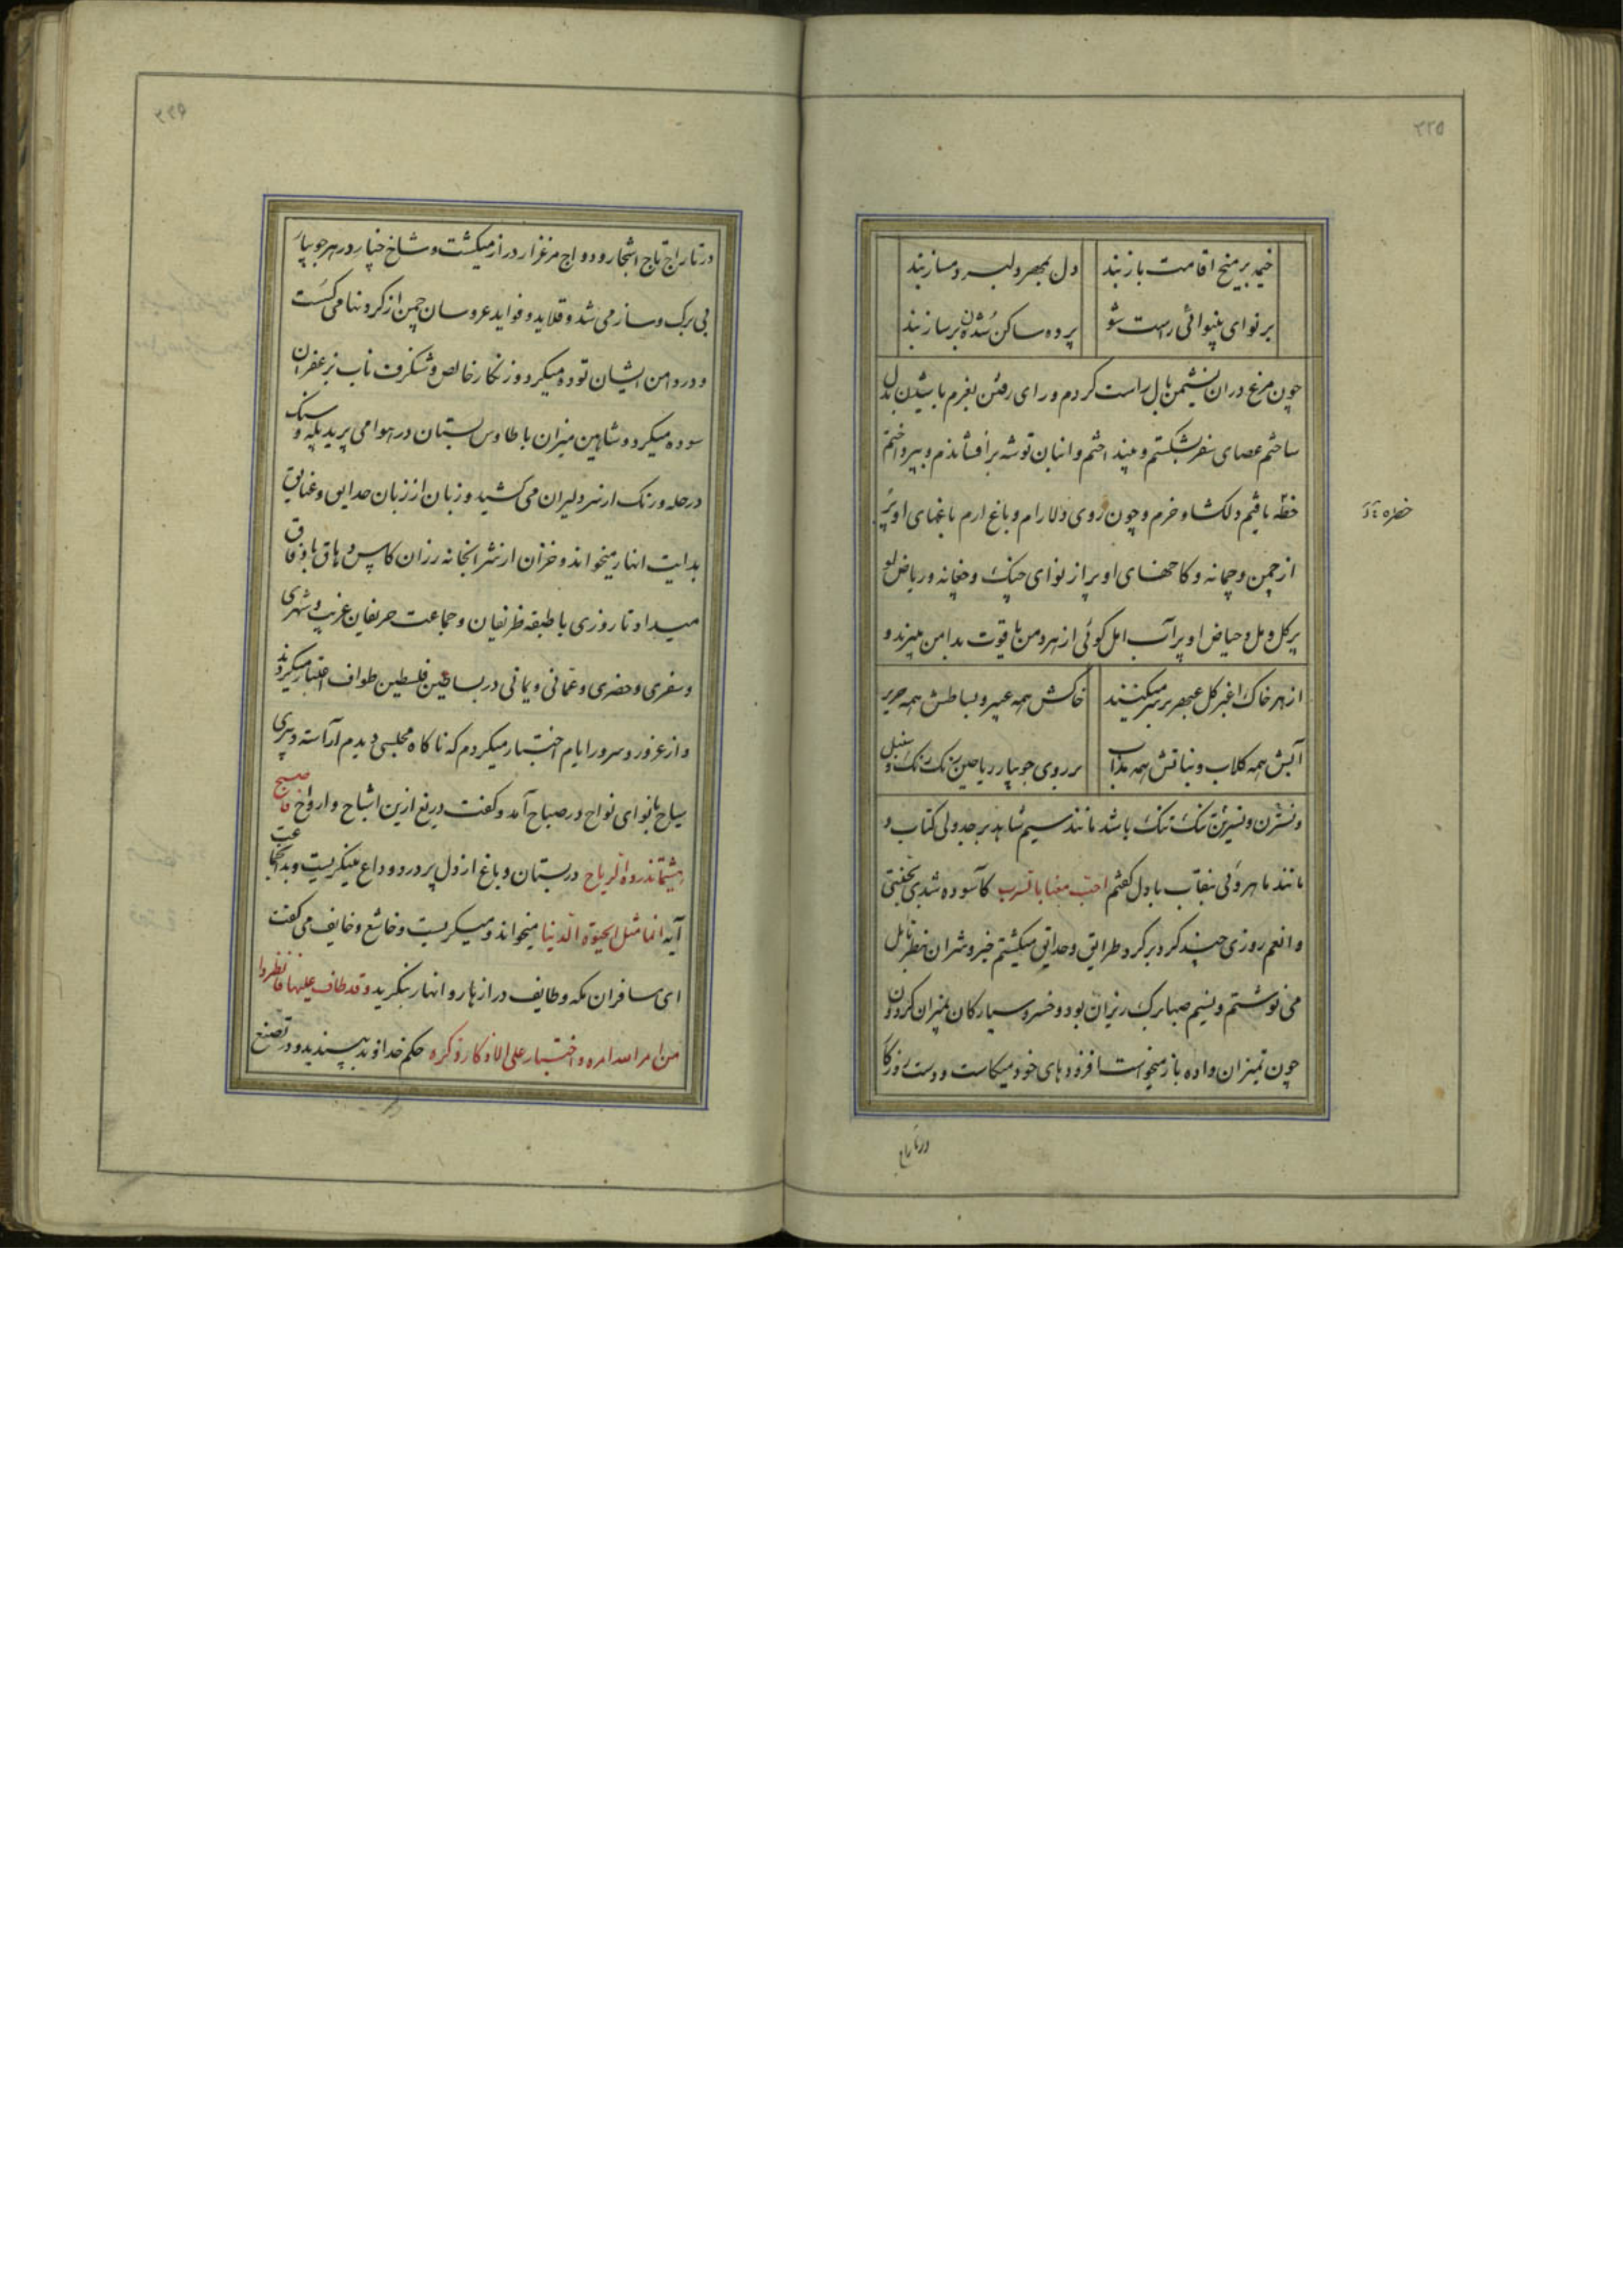 ۲۲۵
خیمه بر میخ اقامت باز بند دل بمهر دلبر و مساز بند
بر نوای بینوائی راست شو پرده ساکن شدن بر ساز بند
چون مرغ دران نشیمن بال راست کردم و رای رفتن بعزم باشیدن بدل
ساختم عصای سفر بشکستم و بینداختم و انبان توشه برافشاندم و بپرداختم
خطهٔ یافتم دلکشا و خرم و چون روی دلارام و باغ ارم باغهای او پر
از چمن و چمانه و کاخهای او پر از نوای چنک و چغانه و ریاض او
پر کل و مل و حیاض او پر آب امل کوئی از بهر دمن یاقوت بدامن میبرند و
از بهر خاک اغبر کل عبهر بر سر میکنند خاکش همه عبیر و بساطش همه حریر
آبش همه کلاب و نباتش همه مذاب بر روی جویبار ریاحین رنک رنک و سنبل
و نسترن و نسرین تنک تنک باشد مانند سیم شاهد بر جدولی کتاب و
مانند ماهروئی بنقاب با دل کفتم احب مغنابا قترب کآسوده شدی بجنبتی
و انعم روزی چند کرد بر کرد طرایق و حدایق میکشتم خیر و شر ان بنظر تامل
می نوشتم و نسیم صبا برک ریزان بود و خسرو سیارکان بمیزان کردون و
چون تمیزان داده باز میخواست افزودهای خود میکاست و دست روزکار
در تاراج
۲۲۶
در تاراج تاج اشجار و دواج مرغزار دراز میکشت و شاخ خیار در هر جویبار
بی برک و ساز می شد و قلاید و فواید عروسان چمن از کردنها می کسست
و در دامن ایشان توده میکرد و زنکار خالص و شنکرف ناب بزعفران
سوده میکرد و شاهین میزان با طاوس بستان در هوا می پرید بکه و سنک
در حله و رنک از سر دلیران می کشید و زبان از زبان حدایق و عنایق
بدایت انهار میخواند و خزان از شرابخانه رزان کاس دهاق با وفاق
میداد تا روزی با طبقه ظریفان و جماعت حریفان غریب و شهری
و سفری و حضری و عمانی و یمانی در بساتین فلسطین طواف اختیار میکردند
و از غرور و سرور ایام اختیار میکردم که ناکاه مجلسی دیدم آراسته و پیری
سیاح با نوای نواح در صباح آمد و کفت دریغ ازین اشباح و ارواح فاصبح
هشیما تذروه الریاح در بستان و باغ از دل پر درد و داع مینکریست و بدیجماعت
آیه انما مثل الحیوة الدنیا میخواند و میکریست و خاشع و خایف می کفت
ای مسافران مکه و طایف در ازهار و انهار بنکرید و قد طاف علیها فانظروا
من امر الله امره و اختبار علی الاذکار ذکره حکم خداوند بپسندید و در تصنع